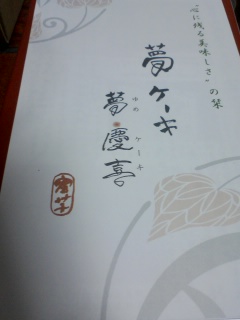 “心に残る美味しさ”の栞
夢ケーキ
夢慶喜
ゆめ
ケーキ